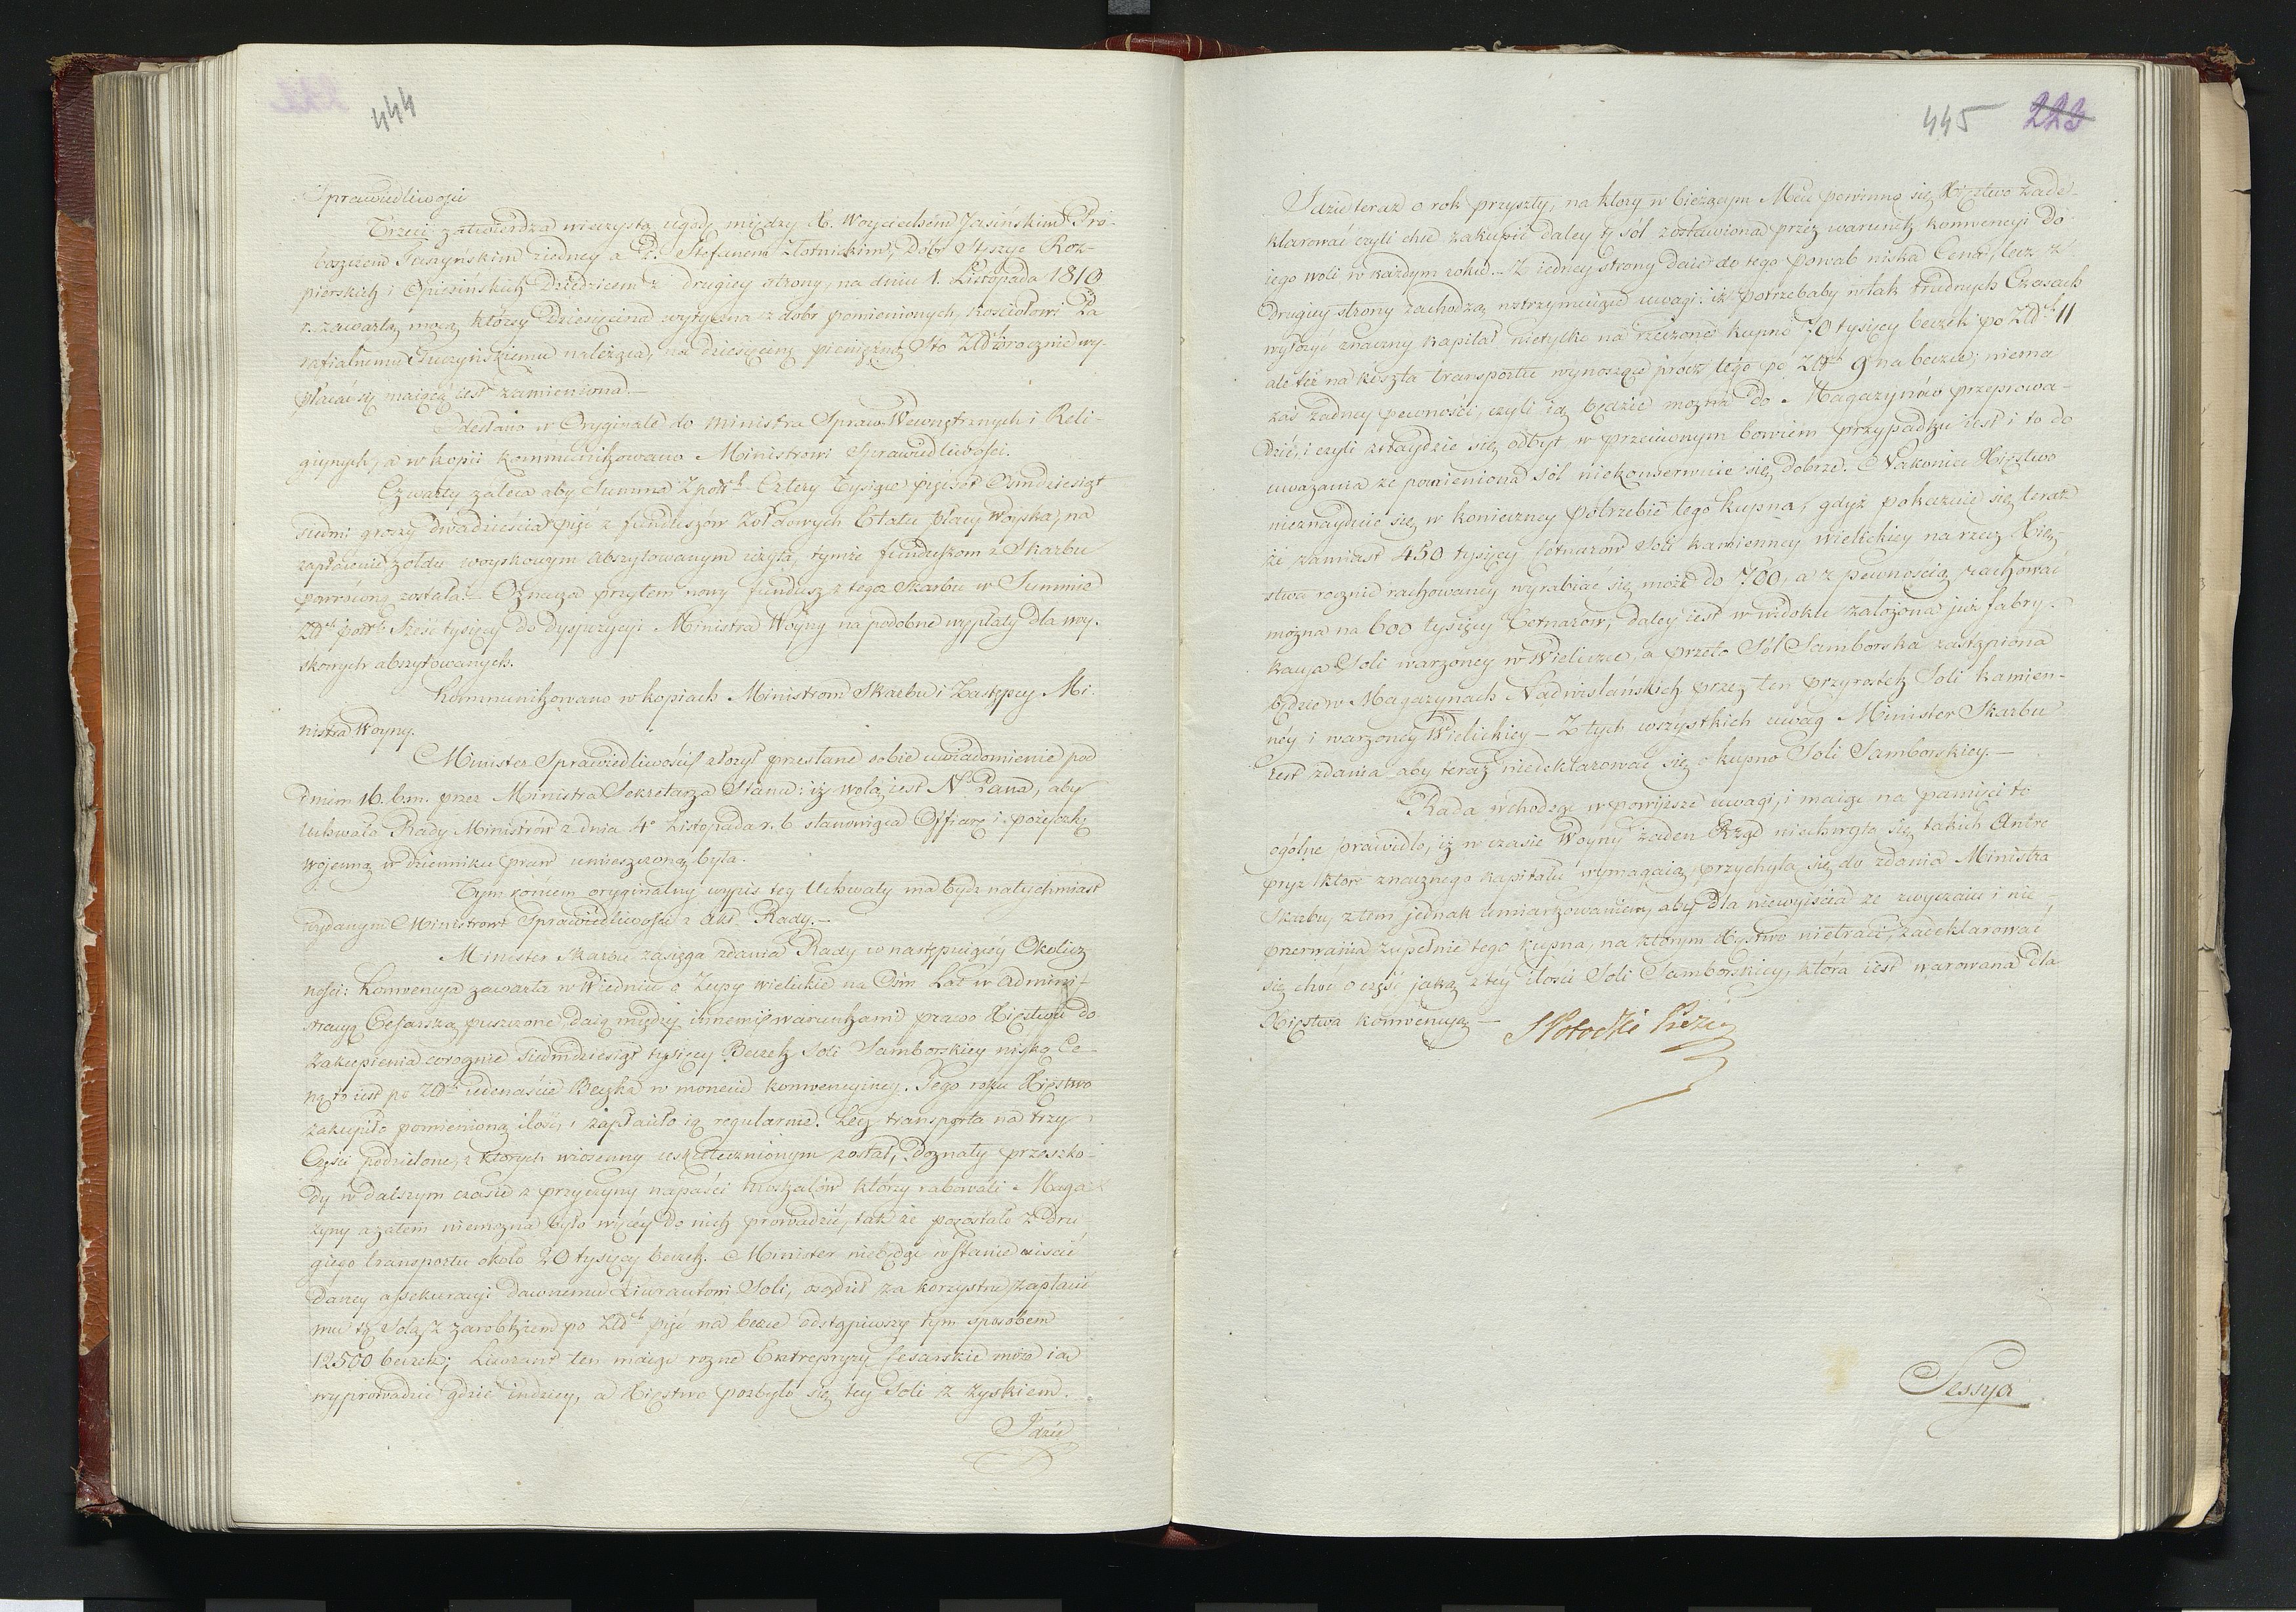 444
Sprawiedliwości
Trzeci zatwierdza wieczystą ugodę między X. Woyciechem Jasińskim Pro-
boszczem Tuczyńskim z iedney a P. Stefanem Złotnickim, Dóbr
pierskich i Dziedzicem z drugiey strony, na dniu 1. Listopada 1810
r. zawartą, mocą którey Dziesięcina wytyczna z dobr pomienionych, kościołowi Pa
rafialnemu Tuczyńskiemu należąca, na dziesięcinę pieniężną Sto Złł. rocznie wy-
płacać się maiącą iest zamieniona.—
Odesłano w Oryginale do Ministra Spraw Wewnętrznych i Reli-
giynych, a w kopii kommunikowano Ministrowi Sprawiedliwości.
Czwarty zaleca aby Summa Zpolk Cztery Tysiące pięćset Ośmdziesiąt
siedm groszy dwadzieścia pięć z funduszów Żołdowych Etatu płacy Woyska, na
zapłacenie żołdu woyskowym abszytowanym użyta, tymże funduszom z Skarbu
powróconą została. Oznacza przytem nowy fundusz z tegoż Skarbu w Summie
Złch polch Sześć tysięcy do dyspozycyi Ministra Woyny na podobne wypłaty dla woy-
skowych abszytowanych.
Kommunikowano w kopiach Ministrom Skarbu i Zastępcy Mi-
nistra Woyny.
Minister Sprawiedliwości złożył przesłane sobie uwiadomienie pod
dniem 16. b.m. przez Ministra Sekretarza Stanu: iż wolą iest N. Pana, aby
Uchwała Rady Ministrów z dnia 4o Listopada r. b. stanowiąca Offiarę i pożyczkę
wojenną w dzienniku praw umieszczoną była.
Tym końcem oryginalny wypis tey Uchwały ma bydź natychmiast
wydanym Ministrowi Sprawiedliwości z Akt Rady.—
Minister Skarbu zasięga zdania Rady w następuiącey Okolicz
ności: Konwencya zawarta w Wiedniu o Żupy wielickie na Ośm Lat w Admini-
stracyą Cesarską puszczone, daią między innemi warunkami prawo Xięstwu do
zakupienia corocznie siedmdziesiąt tysięcy Beczek Soli Samborskiey niską Ce-
ną to iest po Złch iedenaście Beczka w monecie konwencyiney. Tego roku Xięstwo
zakupiło pomienioną ilość, i zapłaciło ią regularnie. Lecz transporta na trzy
Części podzielone, z których wiosenny uskutecznionym został, doznały przeszko-
dy w dalszym czasie z przyczyny napaści moskalów którzy rabowali Maga
zyny a zatem niemożna było więcey do nich prowadzić, tak że pozostało z dru
giego transportu około 20 tysięcy beczek. Minister niebędąc w Stanie uiścić
daney assekuracyi dawnemu Liwrantowi Soli, osądził za korzystne zapłacić
mu tą Solą z zarobkiem po Złch pięć na beczce odstąpiwszy tym sposobem
12500 beczek; Liwrant ten maiąc rozne Entrepryzy Cesarskie może ią
wyprowadzić gdzie indziey, a Xięstwo pozbyło się tey Soli z zyskiem.
Idzie
445 223
Idzie teraz o rok przyszły, na który w bieżącym Mcu powinno się Xięstwo zade-
klarować czyli chce zakupić daley tę sól zostawioną przez warunek konwencyi do
iego woli w każdym roku.— Z iedney strony daie do tego powab niska Cena, lecz z
drugiey strony zachodzą wstrzymuiące uwagi: iż potrzebaby w tak trudnych Czasach
wyłożyć znaczny kapitał nietylko na rzeczone kupno 70 tysięcy beczek po Złch 11
ale też na koszta transportu wynoszące prócz tego po Złch 9 na beczce; niema
zaś żadney pewności, czyli ią będzie można do Magazynów przeprowa-
dzić, i czyli znaydzie się odbyt w przeciwnym bowiem przypadku iest i to do
uważania że pomieniona sól niekonserwuie się dobrze. Nakoniec Xięstwo
nieznayduie się w konieczney potrzebie tego kupna, gdyż pokazuie się teraz
że zamiast 450 tysięcy Cetnarów Soli kamienney wielickiey na rzecz Xię-
stwa rocznie rachowaney wyrabiać się może do 700, a z pewnością rachować
można na 600 tysięcy Cetnarów, daley iest w widoku założona już fabry-
kacya Soli warzoney w Wieliczce, a przeto Sól Samborska zastąpiona
będzie w Magazynach Nadwiślańskich przez ten przyrostek Soli kamien-
ney i warzoney Wielickiey — Z tych wszystkich uwag Minister Skarbu
iest zdania aby teraz niedeklarować się o kupno Soli Samborskiey.—
Rada wchodząc w powyższe uwagi, i maiąc na pamięci to
ogólne prawidło, iż w czasie Woyny żaden Rząd niechwyta się takich Antre
pryz które znacznego kapitału wymagaią, przychyla się do zdania Ministra
Skarbu, z tem jednak umiarkowaniem, aby dla niewyiścia ze zwyczaiu i nie
przerwania zupełnie tego kupna, na którym Xięstwo nietraci, zadeklarować
się choć o część jaką z tey ilości Soli Samborskiey, która iest warowana dla
Xięstwa konwencyą —
S Potocki Prezes
Sessya